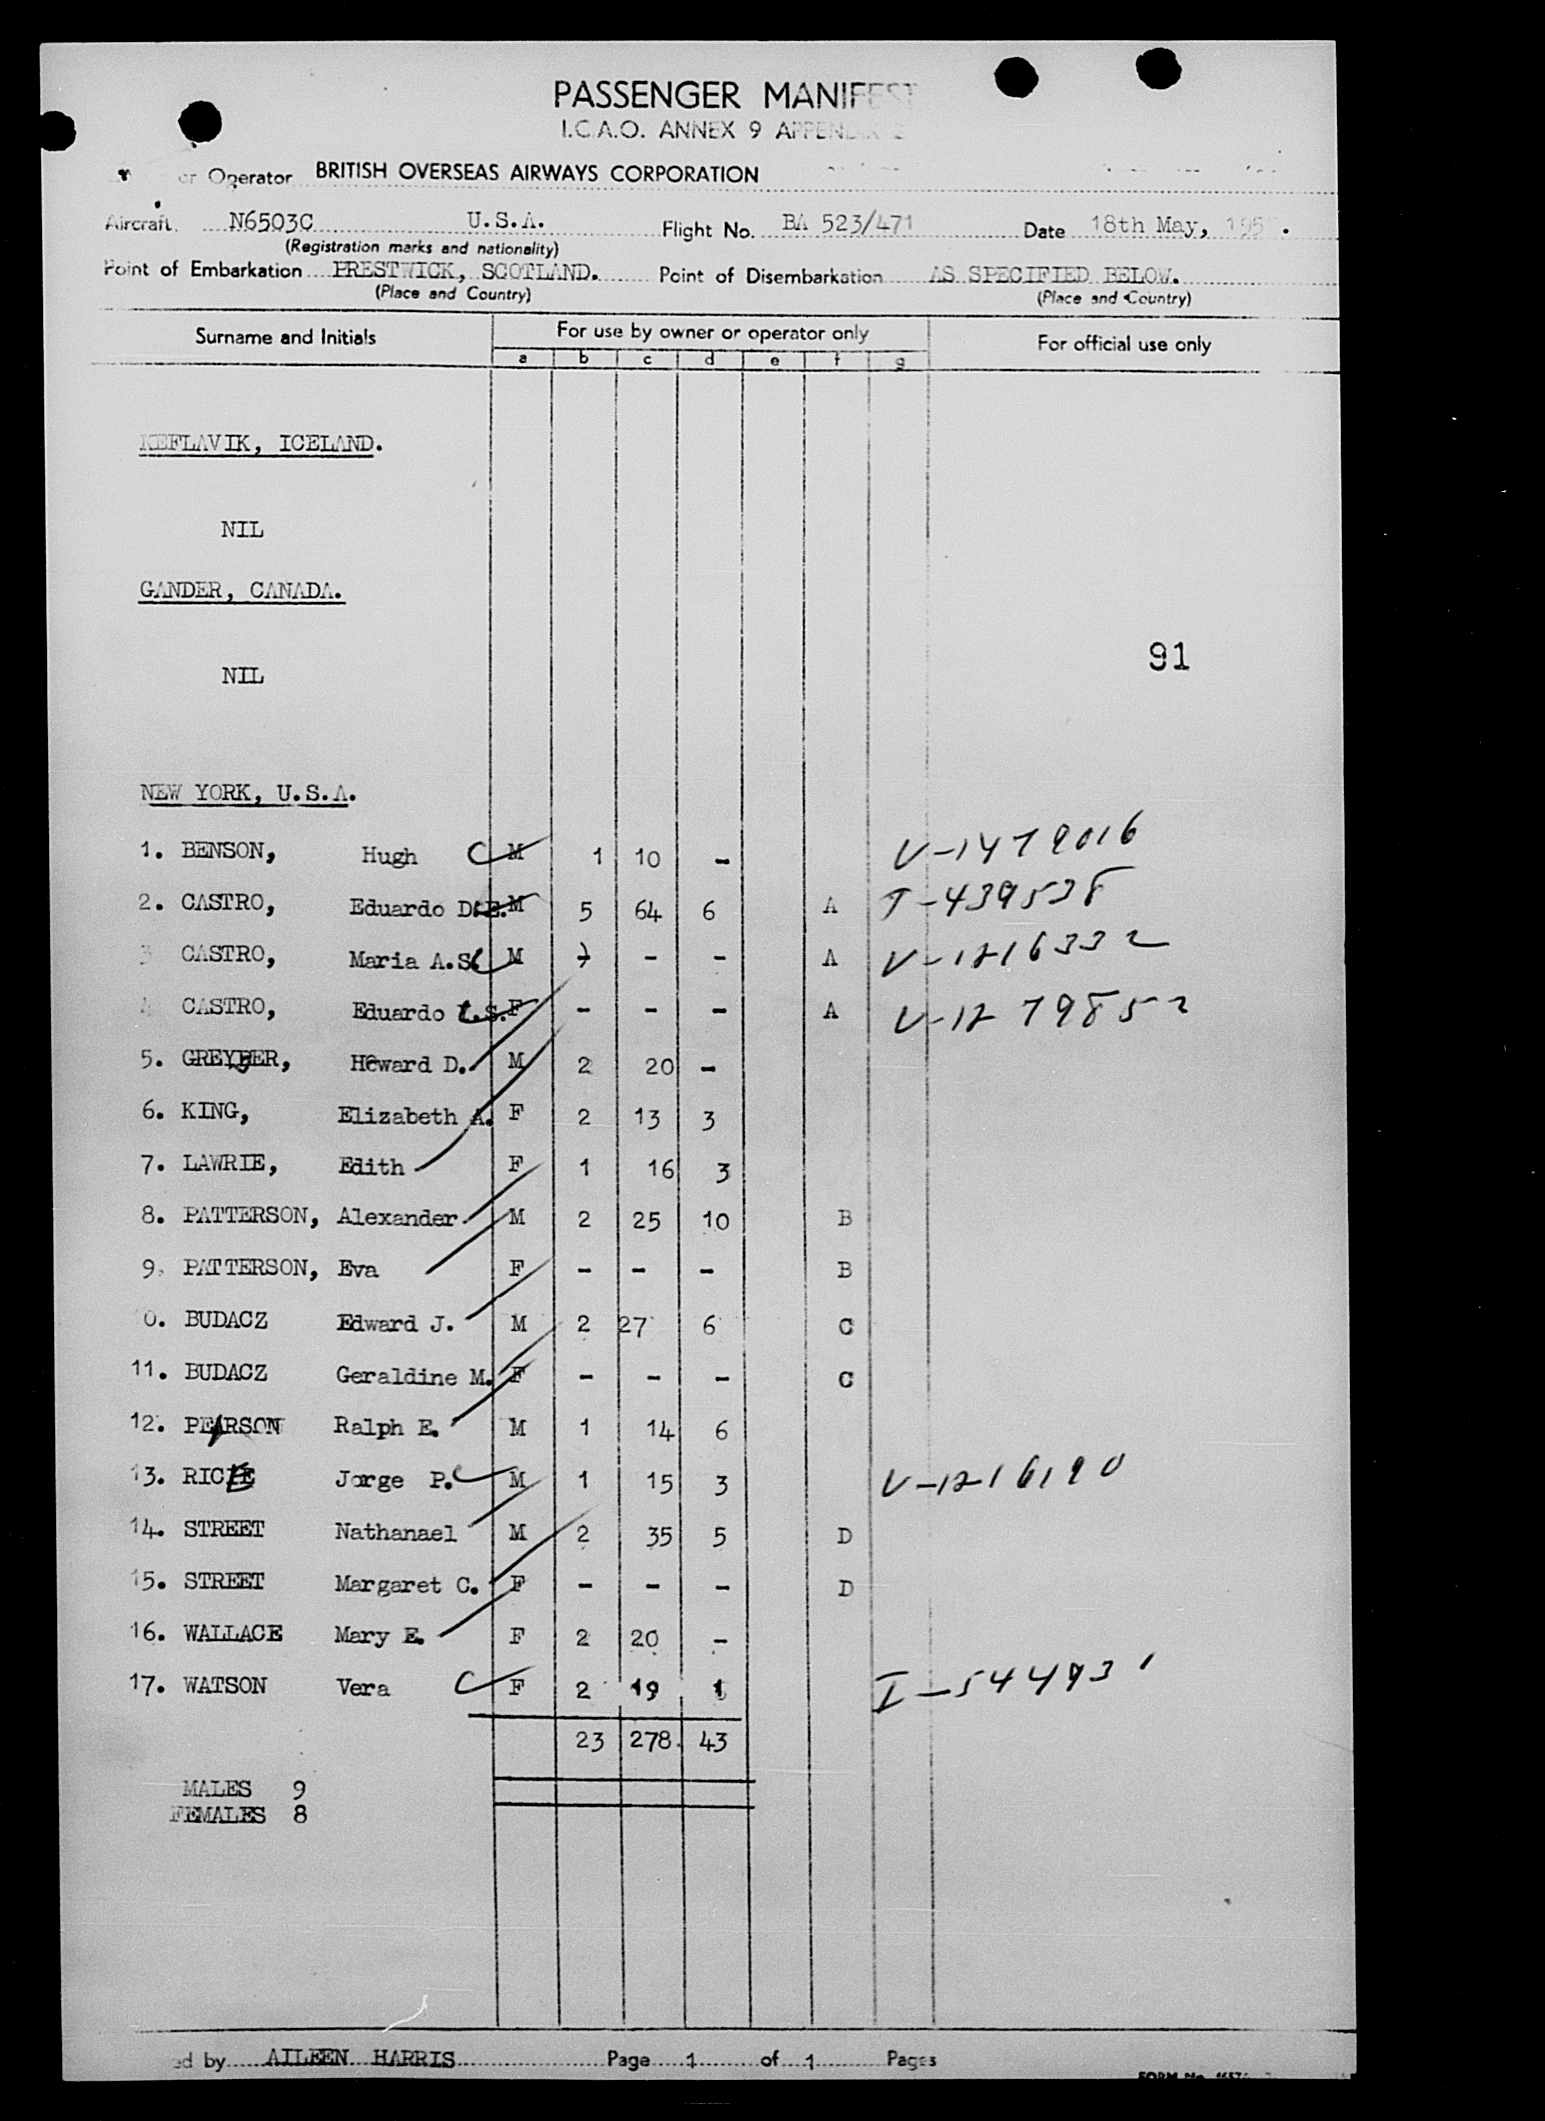 PASSENGER MANIFEST
I.C.A.O. ANNEX 9 APPENDIX
or Operator BRITISH OVERSEAS AIRWAYS CORPORATION
Aircraft N6503C U.S.A. Flight No. BA 523/471 Date 18th May, 195
(Registration marks and nationality)
Point of Embarkation PRESTWICK, SCOTLAND. Point of Disembarkation AS SPECIFIED BELOW.
(Place and Country) (Place and Country)
Surname and Initials For use by owner or operator only For official use only
a b c d e f g
KEFLAVIK, ICELAND.
NIL
GANDER, CANADA.
91
NIL
NEW YORK, U.S.A.
1. BENSON, Hugh C M 1 10 - V-1479016
2. CASTRO, Eduardo D.E. M 5 64 6 A T-439538
3 CASTRO, Maria A.S. M - - - A V-1216332
4 CASTRO, Eduardo L.S. F - - - A V-1279852
5. GREYBER, Howard D. M 2 20 -
6. KING, Elizabeth A. F 2 13 3
7. LAWRIE, Edith F 1 16 3
8. PATTERSON, Alexander M 2 25 10 B
9. PATTERSON, Eva F - - - B
0. BUDACZ Edward J. M 2 27 6 C
11. BUDACZ Geraldine M. F - - - C
12. PEARSON Ralph E. M 1 14 6
13. RICE Jorge P. C M 1 15 3 V-1216190
14. STREET Nathanael M 2 35 5 D
15. STREET Margaret C. F - - - D
16. WALLACE Mary E. F 2 20 -
17. WATSON Vera C F 2 19 1 I-544931
23 278 43
MALES 9
FEMALES 8
ed by AILEEN HARRIS Page 1 of 1 Pages
FORM No.